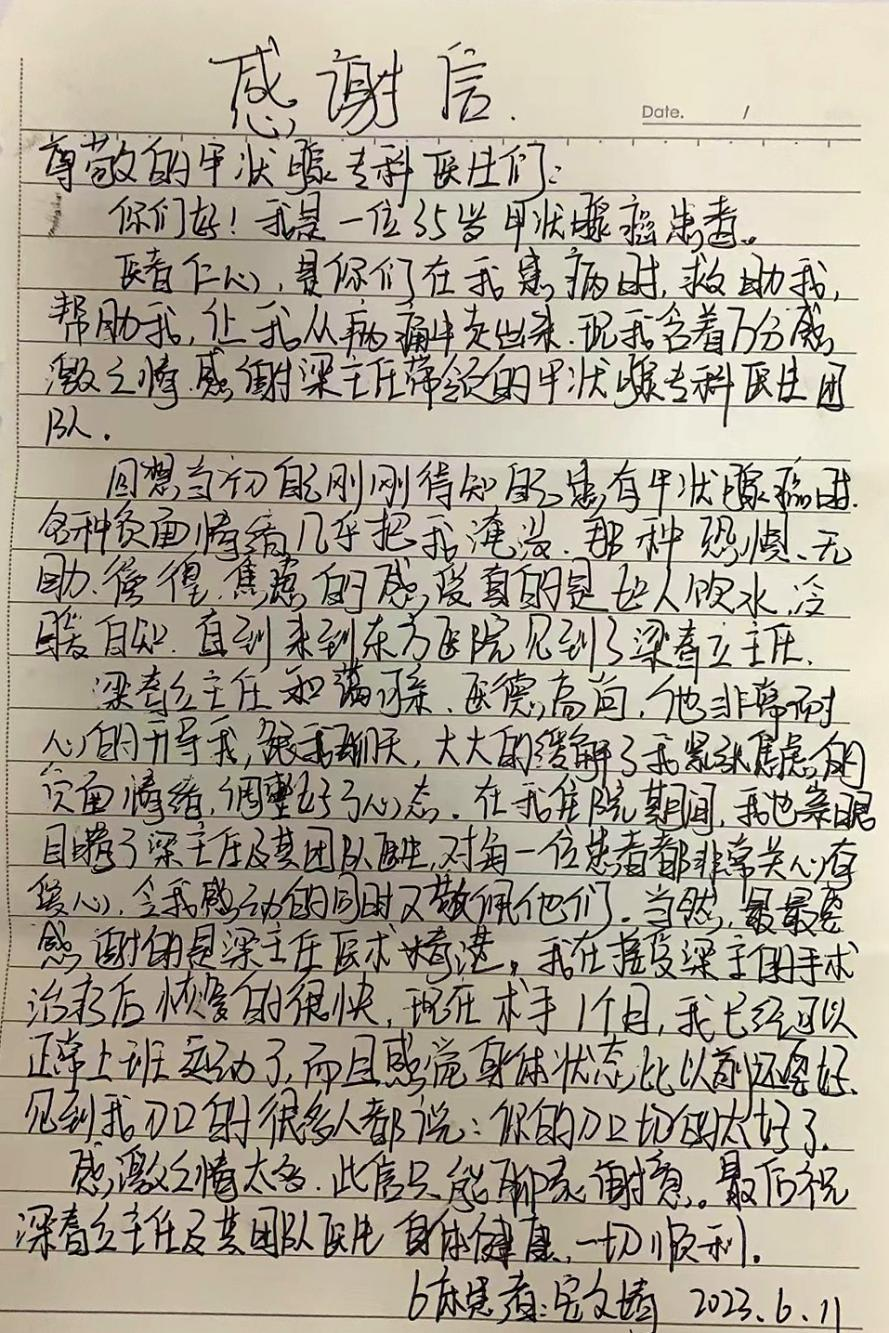 感谢信.
Date. /
尊敬的甲状腺专科医生们:
你们好!我是一位35岁甲状腺癌患者。
医者仁心,是你们在我患病时,救助我,
帮助我,让我从病痛中走出来.现我含着万分感
激之情.感谢梁主任带领的甲状腺专科医生团
队.
回想当初自己刚刚得知自己患有甲状腺癌时.
各种负面情绪几乎把我淹没.那种恐惧、无
助、彷徨、焦虑的感受真的是如人饮水,冷
暖自知.直到来到东方医院见到了梁青立主任.
梁青立主任和蔼可亲.医德高尚,他非常耐
心的开导我,跟我聊天,大大的缓解了我紧张焦虑的
负面情绪,调整好了心态.在我住院期间,我也亲眼
目睹了梁主任及其团队医生,对每一位患者都非常关心有
爱心,令我感动的同时又敬佩他们.当然,最最要
感谢的是梁主任医术精湛。我在接受梁主任的手术
治疗后恢复的很快,现在术手1个月,我已经可以
正常上班运动了,而且感觉身体状态比以前还要好.
见到我刀口的很多人都说:你的刀口切的太好了.
感激之情太多.此信只能聊表谢意。最后祝
梁青立主任及其团队医生 身体健康,一切顺利.
6床患者: 2023.6.11